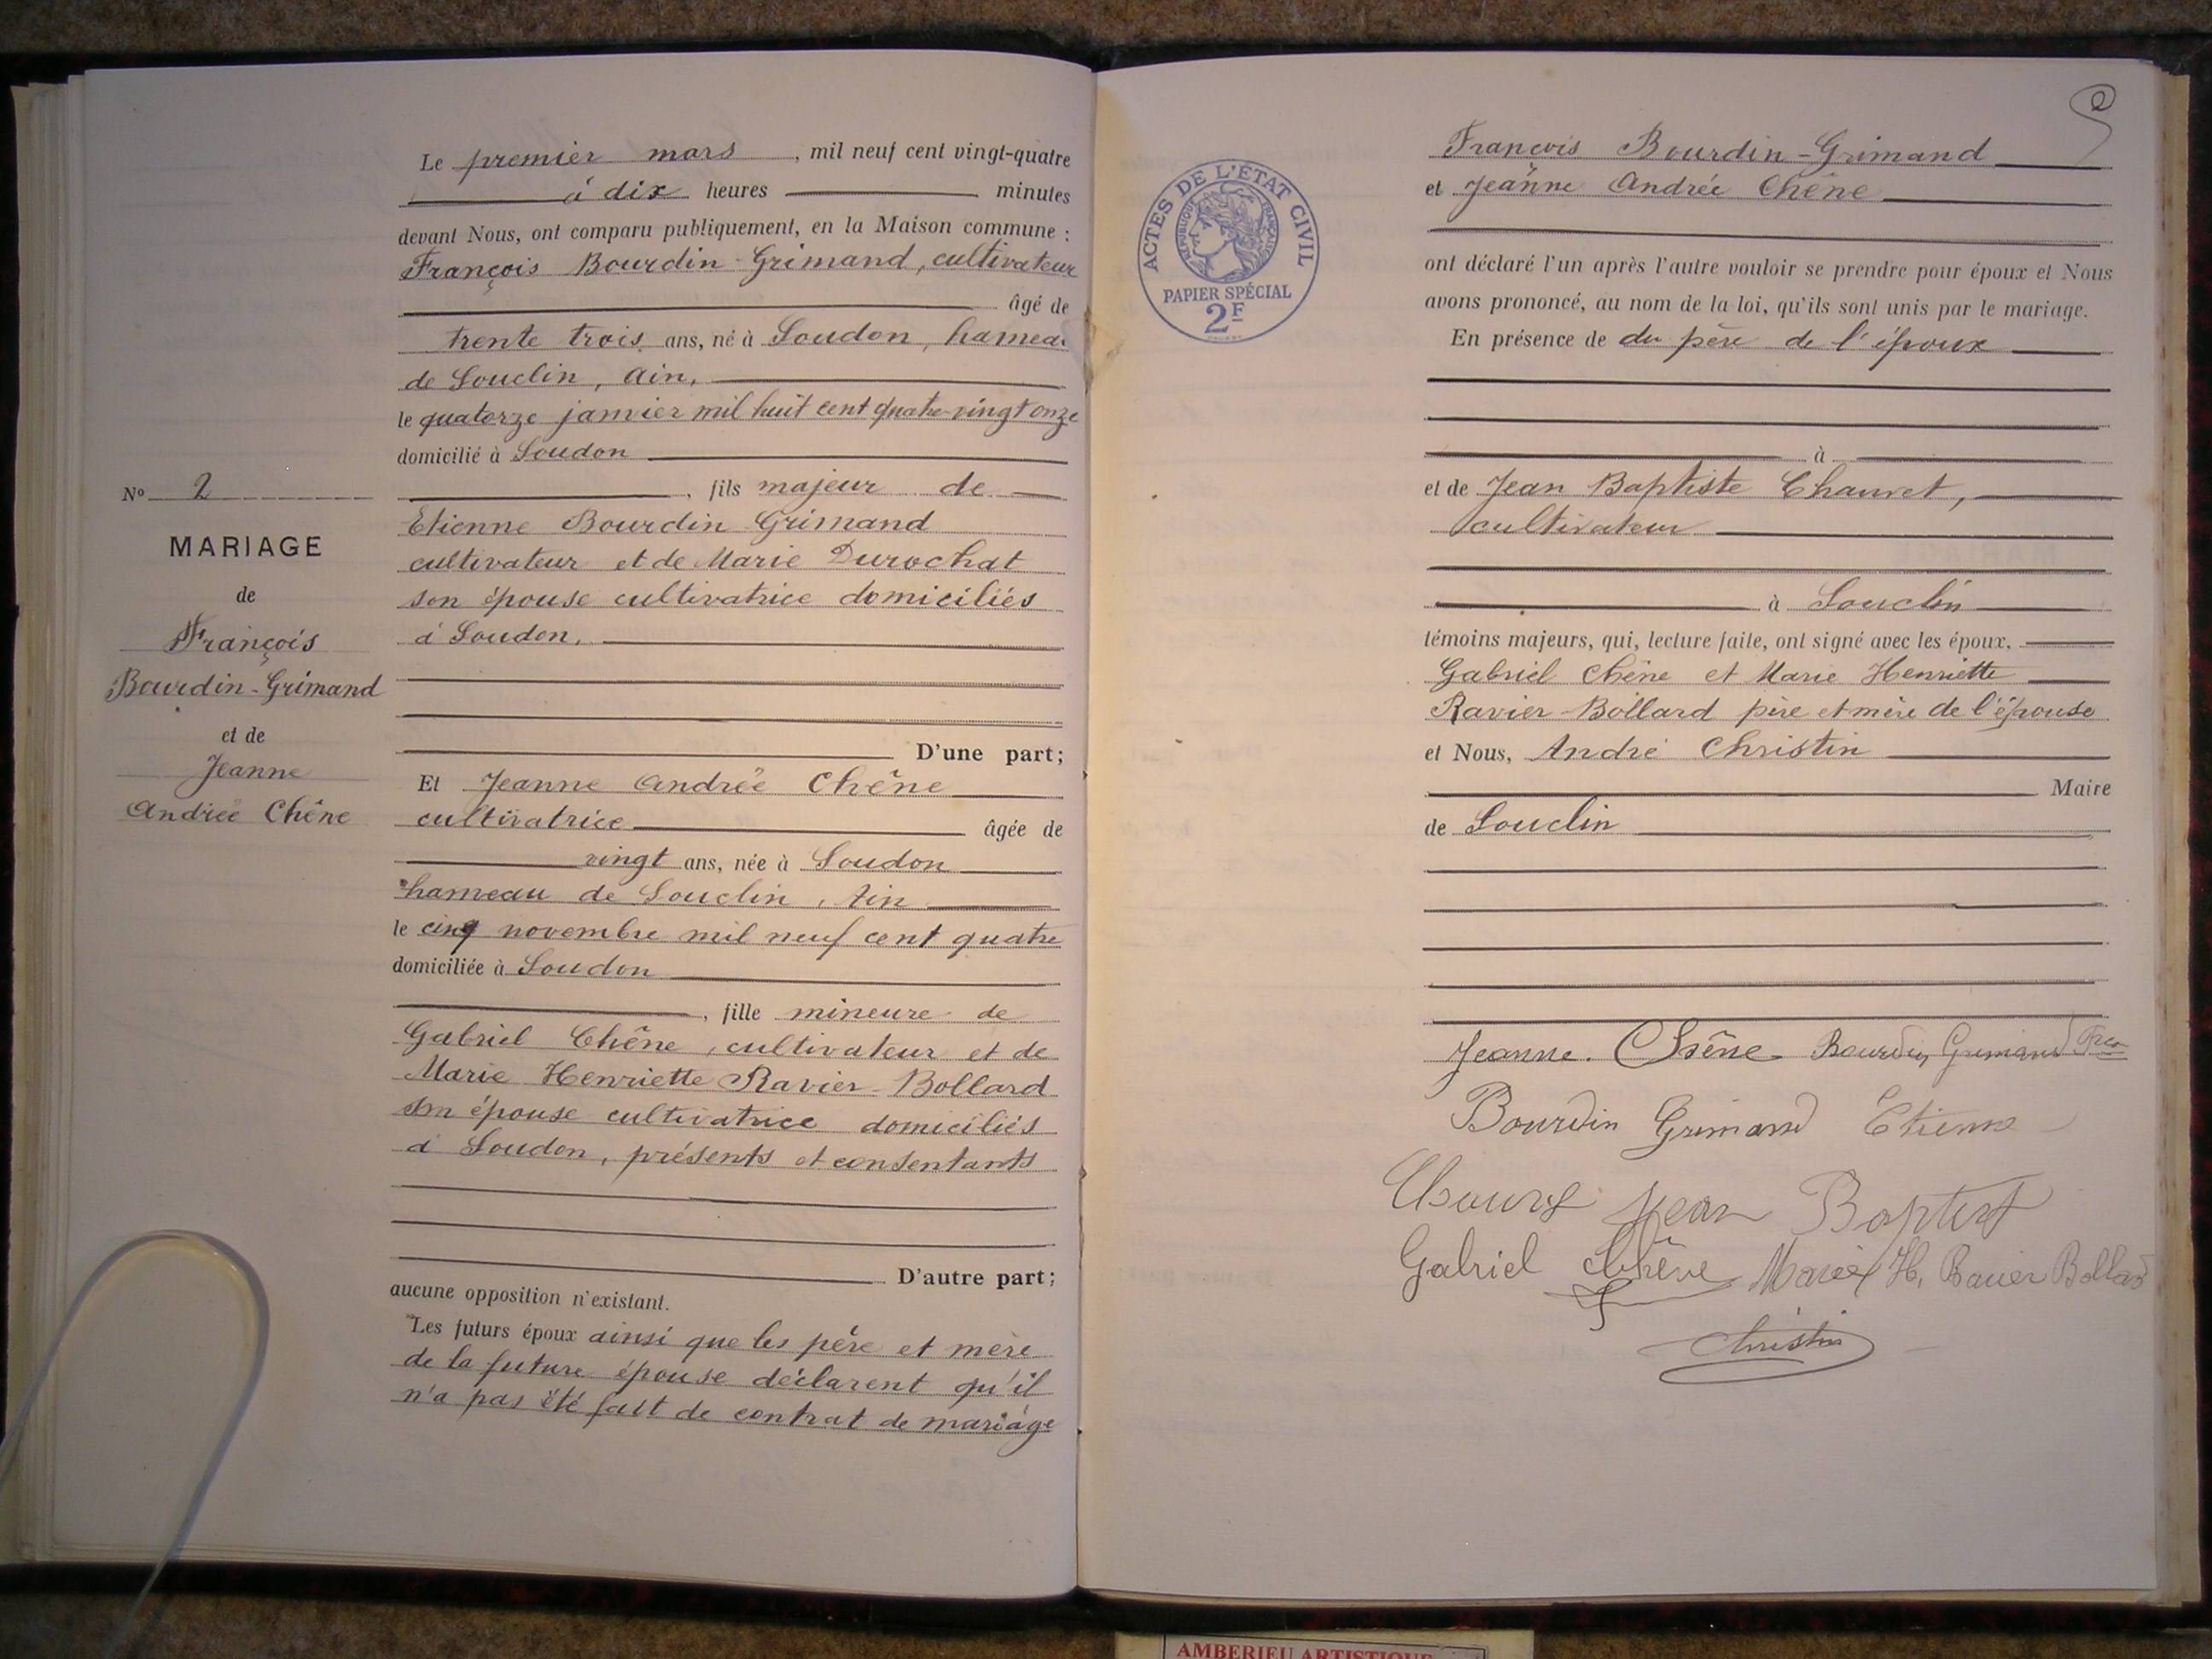 Le premier mars, mil neuf cent vingt-quatre
à dix heures minutes
devant Nous, ont comparu publiquement, en la Maison commune :
François Bourdin-Grimand, cultivateur
âgé de
trente trois ans, né à Soudon, hameau
de Souclin, Ain,
le quatorze janvier mil huit cent quatre-vingt onze
domicilié à Soudon
, fils majeur de
Etienne Bourdin Grimand
cultivateur et de Marie Durochat
son épouse cultivatrice domiciliés
à Soudon,
D'une part;
Et Jeanne Andrée Chêne
cultivatrice âgée de
vingt ans, née à Soudon
hameau de Souclin, Ain
le cinq novembre mil neuf cent quatre
domiciliée à Soudon
, fille mineure de
Gabriel Chêne, cultivateur et de
Marie Henriette Ravier-Bollard
son épouse cultivatrice domiciliés
à Soudon, présents et consentants
D'autre part;
aucune opposition n'existant.
Les futurs époux ainsi que les père et mère
de la future épouse déclarent qu'il
n'a pas été fait de contrat de mariage
No 2
MARIAGE
de
François
Bourdin-Grimand
et de
Jeanne
Andrée Chêne
ACTES DE L'ÉTAT CIVIL
RÉPUBLIQUE FRANÇAISE
PAPIER SPÉCIAL
2F
François Bourdin-Grimand
et Jeanne Andrée Chêne
ont déclaré l'un après l'autre vouloir se prendre pour époux et Nous
avons prononcé, au nom de la loi, qu'ils sont unis par le mariage.
En présence de du père de l'époux
à
et de Jean Baptiste Chauvet,
cultivateur
à Souclin
témoins majeurs, qui, lecture faite, ont signé avec les époux,
Gabriel Chêne et Marie Henriette
Ravier-Bollard père et mère de l'épouse
et Nous, André Christin
Maire
de Souclin
Jeanne. Chêne Bourdin Grimand
Bourdin Grimand Etienne
Jean Baptist
Gabriel Chêne Marie H, Ravier Bollard
Christin
AMBERIEU ARTISTIQUE